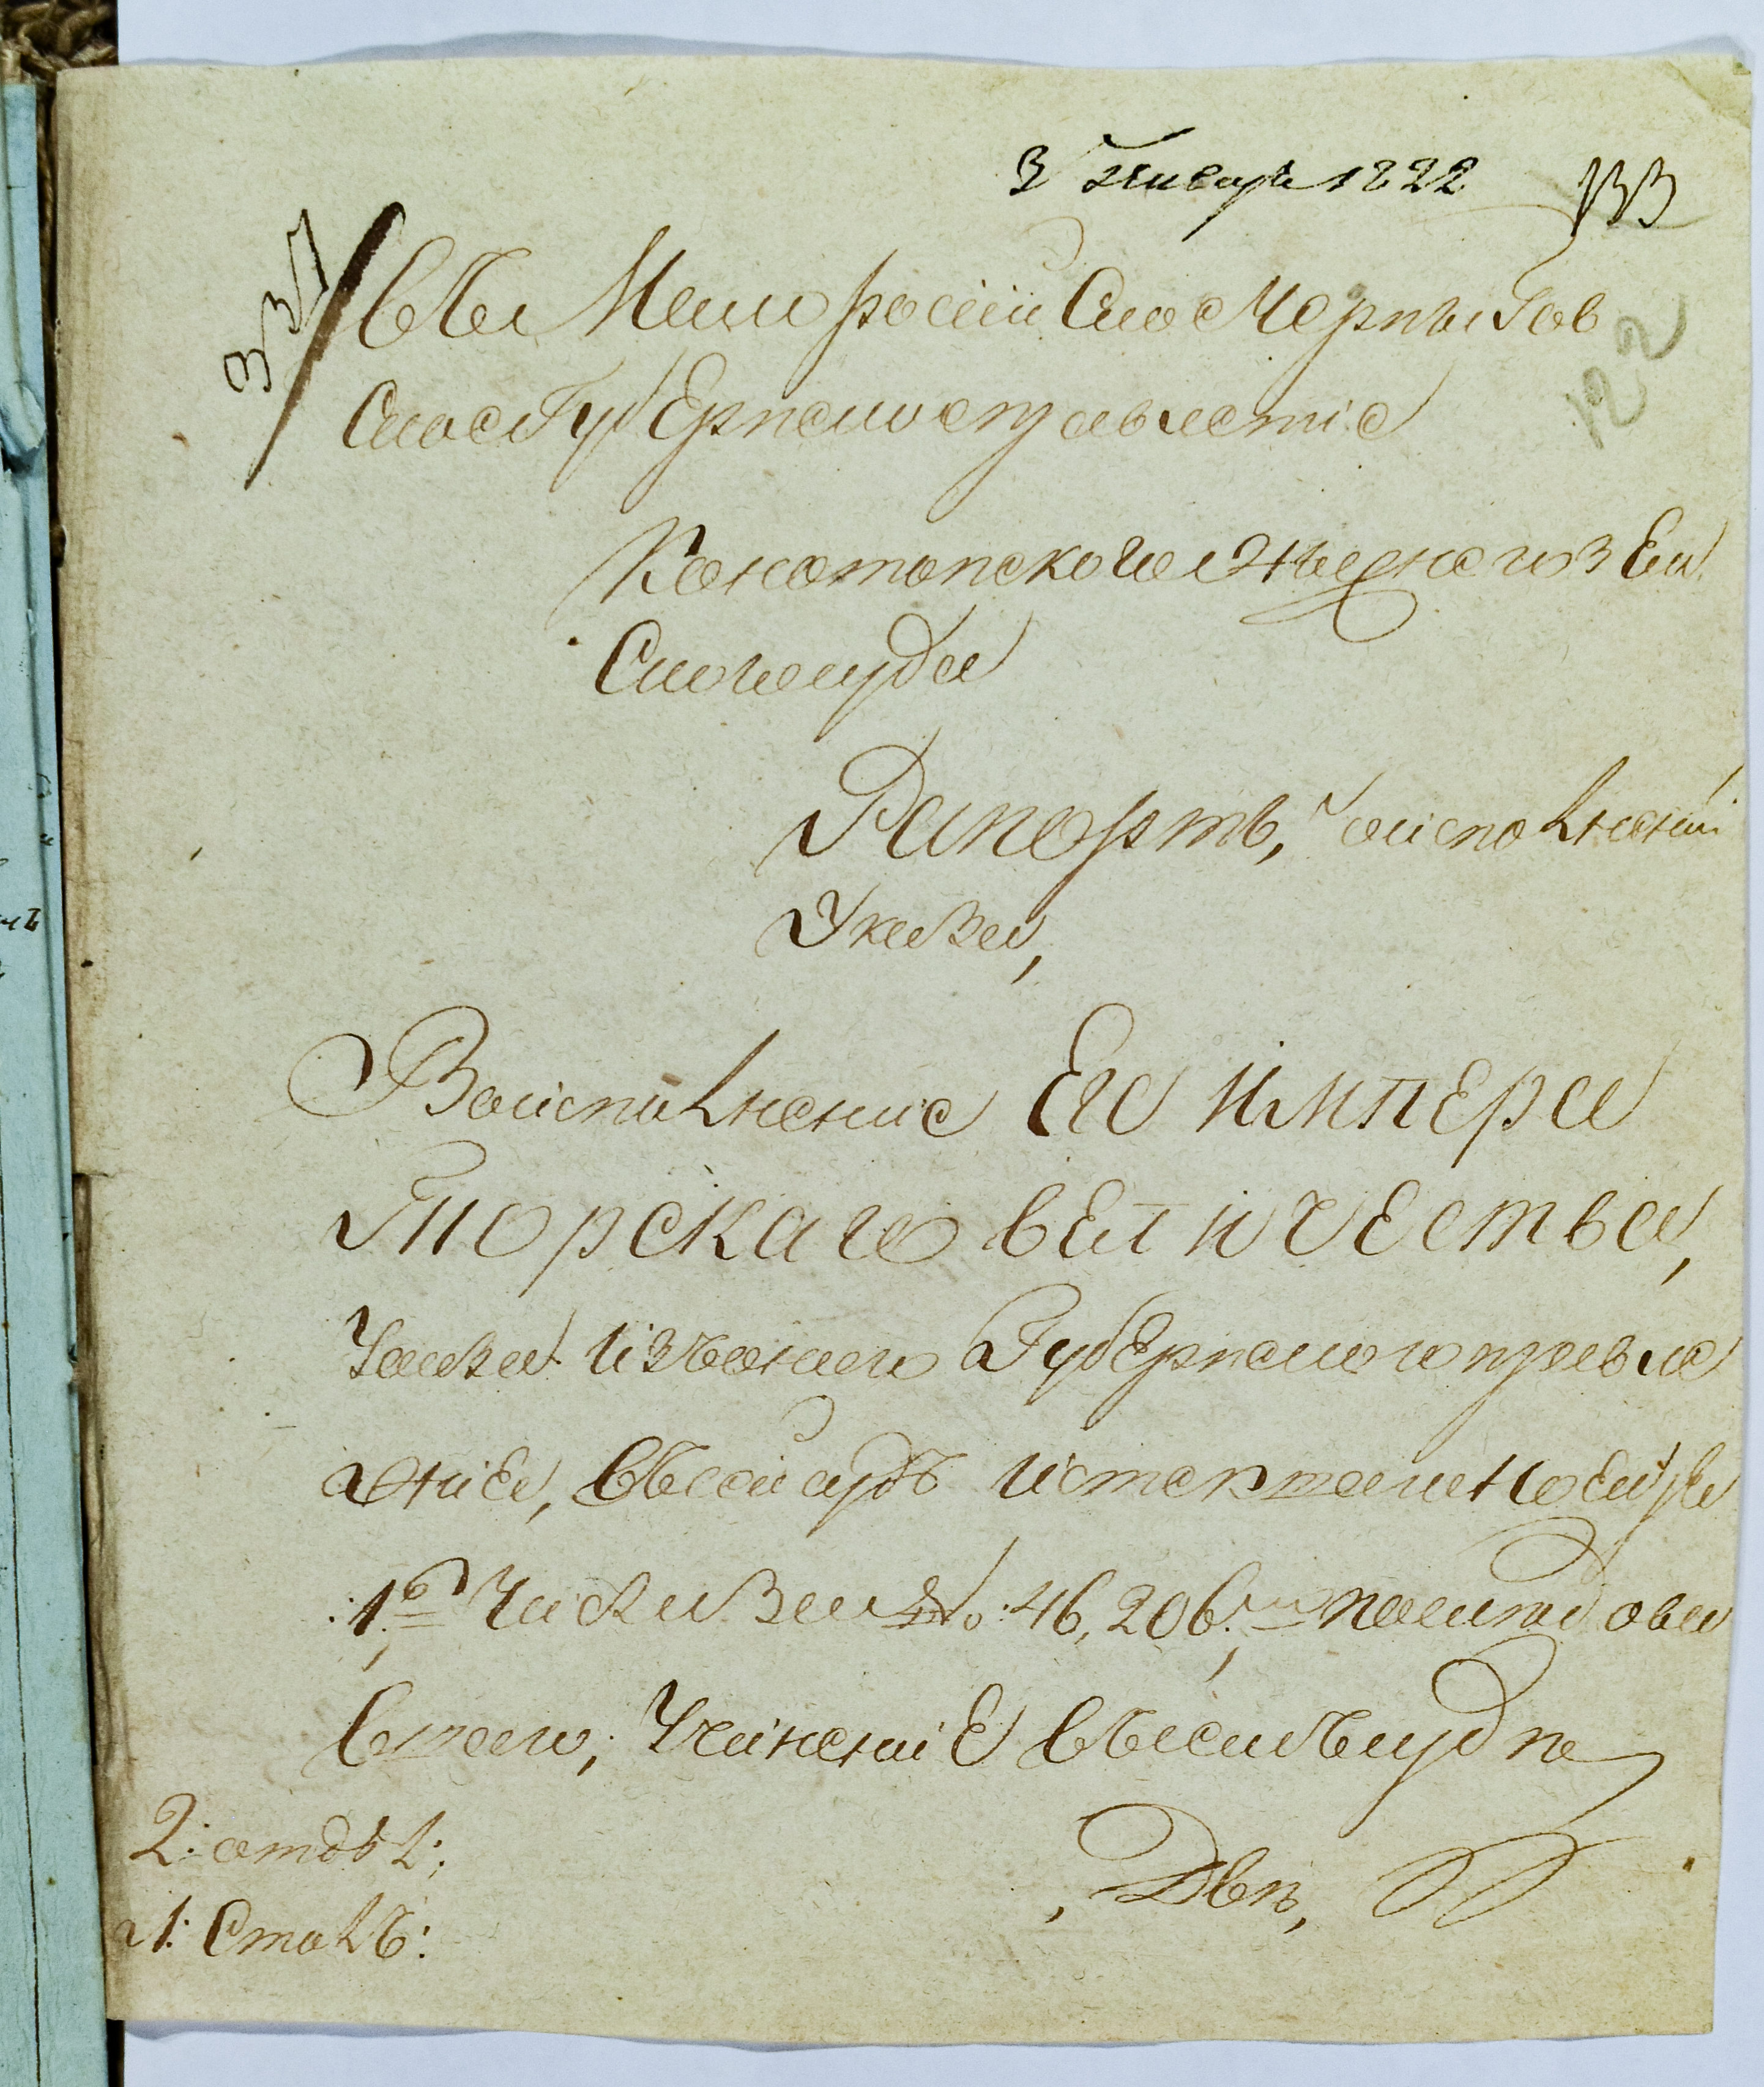 3 Января 1822
133
331
122
Въ Малоросійское Чернигов
ское Губернское правленіе
Конотопского Нижнего Зем
ского суда
Рапортъ, о исполненій
Указа,
Во исполненіе Его Импера
торскаго величества,
Указа изъ онаго Губернского правле
нія, въ сей судъ истекшого Ноября
1го числа за №: 46,206, последова
вшого, учиненіе въ семъ суде
2: отдѣл:
1: Столъ: